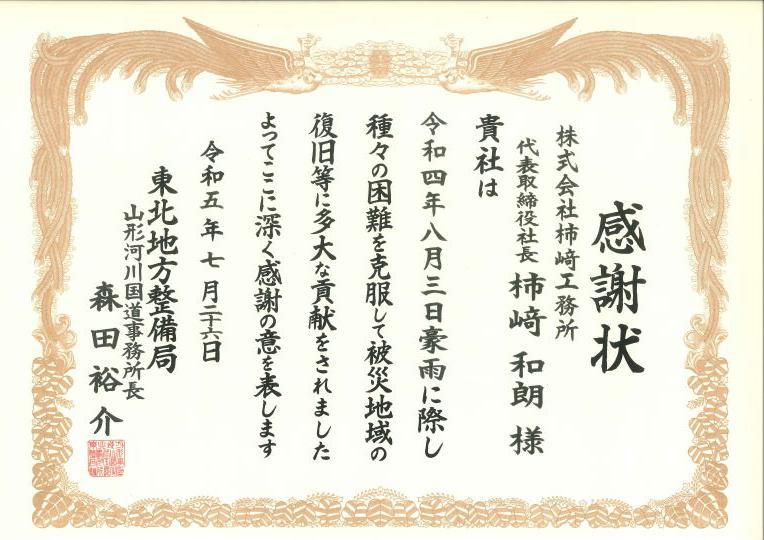 感謝状
株式会社柿﨑工務所
代表取締役社長 柿﨑 和朗 様
貴社は
令和四年八月三日豪雨に際し
種々の困難を克服して被災地域の
復旧等に多大な貢献をされました
よってここに深く感謝の意を表します
令和五年七月二十六日
東北地方整備局
山形河川国道事務所長
森田裕介